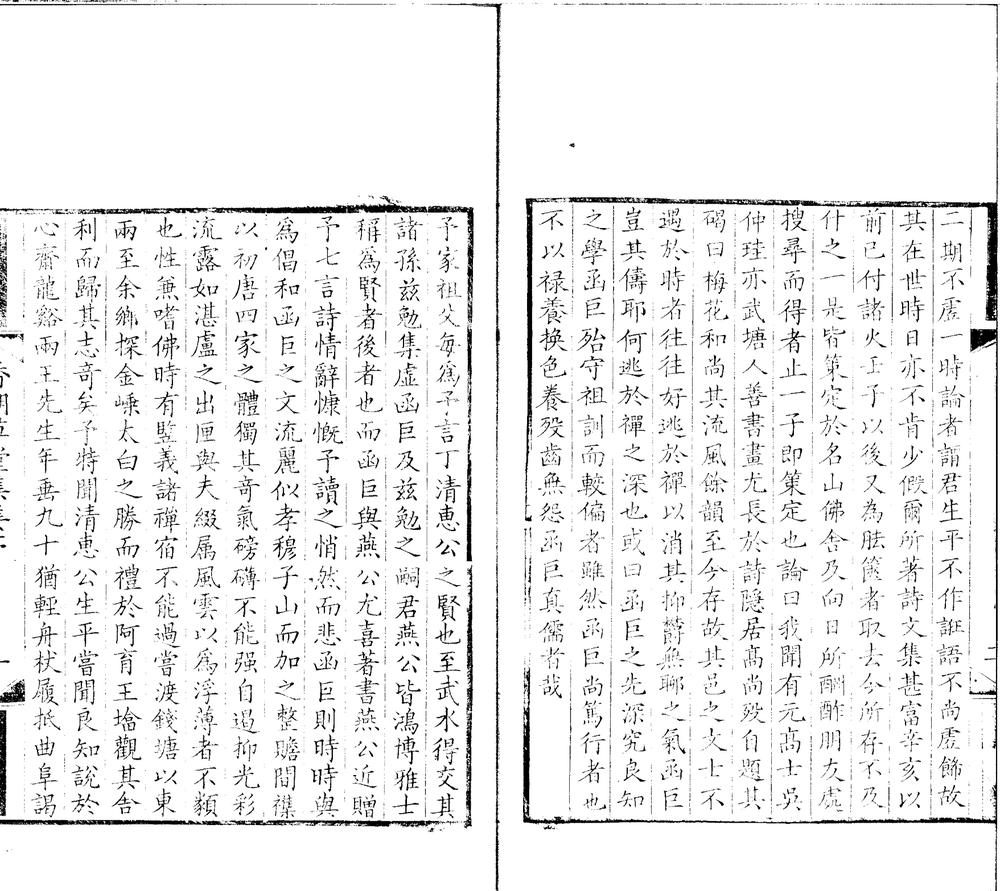 二期不虛一時論者謂君生平不作誑語不尚虛飾故
其在世時日亦不肯少假爾所著詩文集甚富辛亥以
前已付諸火壬子以後又為胠篋者取去今所存不及
什之一是皆策定於名山佛舍及向日所酬酢朋友處
搜尋而得者止一子即策定也論曰我聞有元高士吳
仲珪亦武塘人善書畫尤長於詩隱居高尚歿自題其
碣曰梅花和尚其流風餘韻至今存故其邑之文士不
遇於時者往往好逃於禪以消其抑欝無聊之氣函巨
豈其儔耶何逃於禪之深也或曰函巨之先深究良知
之學函巨殆守祖訓而較偏者雖然函巨尚篤行者也
不以祿養換色養歿齒無怨函巨真儒者哉
二
予家祖父每爲予言丁清惠公之賢也至武水得交其
諸孫兹勉集虛函巨及兹勉之嗣君燕公皆鴻博雅士
稱爲賢者後者也而函巨與燕公尤喜著書燕公近贈
予七言詩情辭慷慨予讀之悄然而悲函巨則時時與
爲倡和函巨之文流麗似孝穆子山而加之整贍間襍
以初唐四家之體獨其奇氣磅礴不能强自遏抑光彩
流露如湛盧之出匣與夫綴属風雲以爲浮薄者不類
也性兼嗜佛時有竪義諸禪宿不能過嘗渡錢塘以東
兩至余鄉探金峨太白之勝而禮於阿育王墖觀其舍
利而歸其志奇矣予特聞清惠公生平嘗聞良知說於
心齋龍谿兩王先生年垂九十猶輕舟杖履抵曲阜謁
一